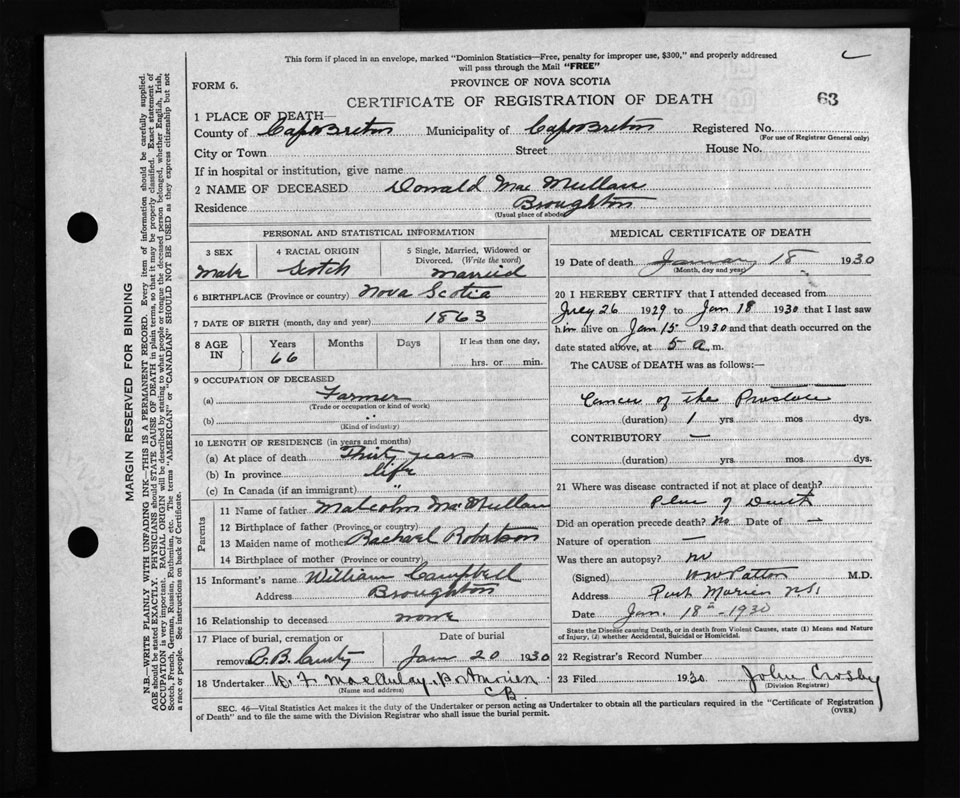 This form if placed in an envelope, marked "Dominion Statistics—Free, penalty for improper use, $300," and properly addressed
will pass through the Mail "FREE"
FORM 6.
PROVINCE OF NOVA SCOTIA
CERTIFICATE OF REGISTRATION OF DEATH
63
1 PLACE OF DEATH—
County of Cape Breton Municipality of Cape Breton Registered No.
(For use of Registrar General only)
City or Town Street House No.
If in hospital or institution, give name
2 NAME OF DECEASED Donald Mac Mullan
Residence Broughton
(Usual place of abode)
PERSONAL AND STATISTICAL INFORMATION
3 SEX 4 RACIAL ORIGIN 5 Single, Married, Widowed or
Divorced. (Write the word)
Male Scotch Married
6 BIRTHPLACE (Province or country) Nova Scotia
7 DATE OF BIRTH (month, day and year) 1863
8 AGE IN Years Months Days If less than one day,
66 hrs. or min.
9 OCCUPATION OF DECEASED
(a) Farmer
(Trade or occupation or kind of work)
(b) "
(Kind of industry)
10 LENGTH OF RESIDENCE (in years and months)
(a) At place of death Thirty years
(b) In province life
(c) In Canada (if an immigrant) "
Parents
11 Name of father Malcolm MacMullan
12 Birthplace of father (Province or country)
13 Maiden name of mother Rachael Robatson
14 Birthplace of mother (Province or country)
15 Informant's name William Campbell
Address Broughton
16 Relationship to deceased none
17 Place of burial, cremation or Date of burial
removal C.B. County Jan 20 1930
18 Undertaker MacAulay, Pt Morien
(Name and address) C.B.
MEDICAL CERTIFICATE OF DEATH
19 Date of death January 18 1930
(Month, day and year)
20 I HEREBY CERTIFY that I attended deceased from
July 26 1929 to Jan 18 1930 that I last saw
him alive on Jan 15 1930 and that death occurred on
date stated above, at 5 a. m.
The CAUSE of DEATH was as follows:—
Cancer of the Prostate
(duration) 1 yrs mos dys.
CONTRIBUTORY —
(duration) yrs. mos. dys.
21 Where was disease contracted if not at place of death?
Place of Death
Did an operation precede death? No Date of —
Nature of operation —
Was there an autopsy? no
(Signed) W W Patton M.D.
Address Port Morien N.S.
Date Jan. 18th - 1930
State the Disease causing Death, or in death from Violent Causes, state (1) Means and Nature
of Injury, (2) whether Accidental, Suicidal or Homicidal.
22 Registrar's Record Number
23 Filed 1930. John Crosby
(Division Registrar)
SEC. 46—Vital Statistics Act makes it the duty of the Undertaker or person acting as Undertaker to obtain all the particulars required in the "Certificate of Registration
of Death" and to file the same with the Division Registrar who shall issue the burial permit. (OVER)
MARGIN RESERVED FOR BINDING
N.B.—WRITE PLAINLY WITH UNFADING INK—THIS IS A PERMANENT RECORD. Every item of information should be carefully supplied.
AGE should be stated EXACTLY. PHYSICIANS should STATE CAUSE OF DEATH in plain terms, so that it may be properly classified. Exact statement of
OCCUPATION is very important. RACIAL ORIGIN will be described by stating to what people or tongue the deceased person belonged, whether English, Irish,
Scotch, French, German, Russian, Ruthenian, etc. The terms "AMERICAN" or "CANADIAN" SHOULD NOT BE USED as they express citizenship but not
a race or people. See instructions on back of Certificate.